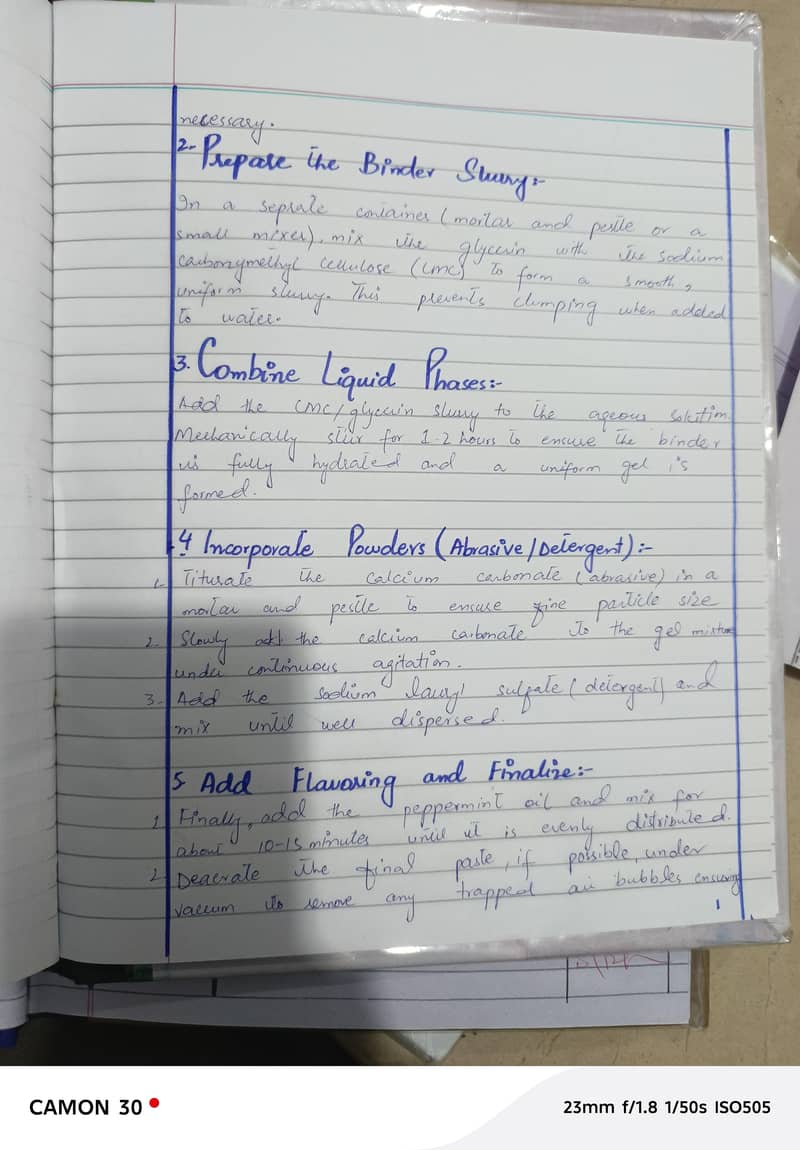 necessary.
2- Prepare the Binder Slurry:-
In a seprate container (mortar and pestle or a
small mixer), mix the glycerin with the sodium
carboxymethyl cellulose (CMC) to form a smooth,
uniform slurry. This prevents clumping when added
to water.
3. Combine Liquid Phases:-
Add the CMC/glycerin slurry to the aqeous solution.
Mechanically stiir for 1-2 hours to ensure the binder
is fully hydrated and a uniform gel is
formed.
4 Incorporate Powders (Abrasive/Detergent):-
1. Titurate the calcium carbonate (abrasive) in a
mortar and pestle to ensure fine particle size
2. Slowly add the calcium carbonate to the gel mixture
under continuous agitation.
3. Add the sodium lauryl sulfate (detergent) and
mix until well dispersed.
5 Add Flavoring and Finalize:-
1. Finally, add the peppermint oil and mix for
about 10-15 minutes until it is evenly distributed.
2. Deaerate the final paste, if possible, under
vaccum to remove any trapped air bubbles ensuring
CAMON 30
23mm f/1.8 1/50s ISO505